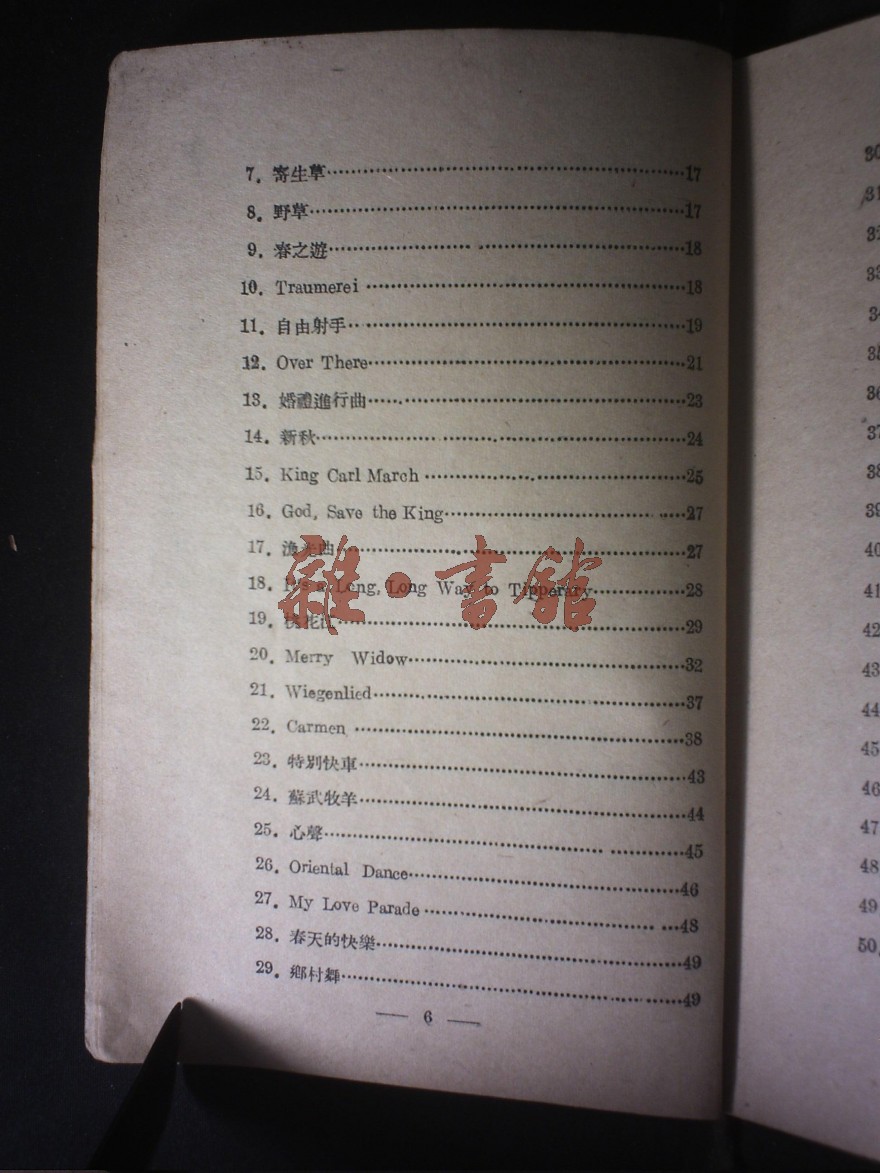 7. 寄生草 17
8. 野草 17
9. 春之遊 18
10. Traumerei 18
11. 自由射手 19
12. Over There 21
13. 婚禮進行曲 23
14. 新秋 24
15. King Carl March 25
16. God, Save the King 27
17. 漁光曲 27
18. It's a Long, Long Way to Tipperary 28
19. 桃花江 29
20. Merry Widow 32
21. Wiegenlied 37
22. Carmen 38
23. 特別快車 43
24. 蘇武牧羊 44
25. 心聲 45
26. Oriental Dance 46
27. My Love Parade 48
28. 春天的快樂 49
29. 鄉村舞 49
— 6 —
雜·書館
30
31
32
33
34
35
36
37
38
39
40
41
42
43
44
45
46
47
48
49
50.